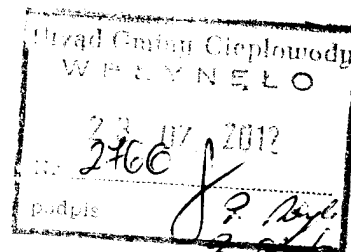 Urząd Gminy Ciepłowody
WPŁYNĘŁO
2012
Nr 2766
podpis